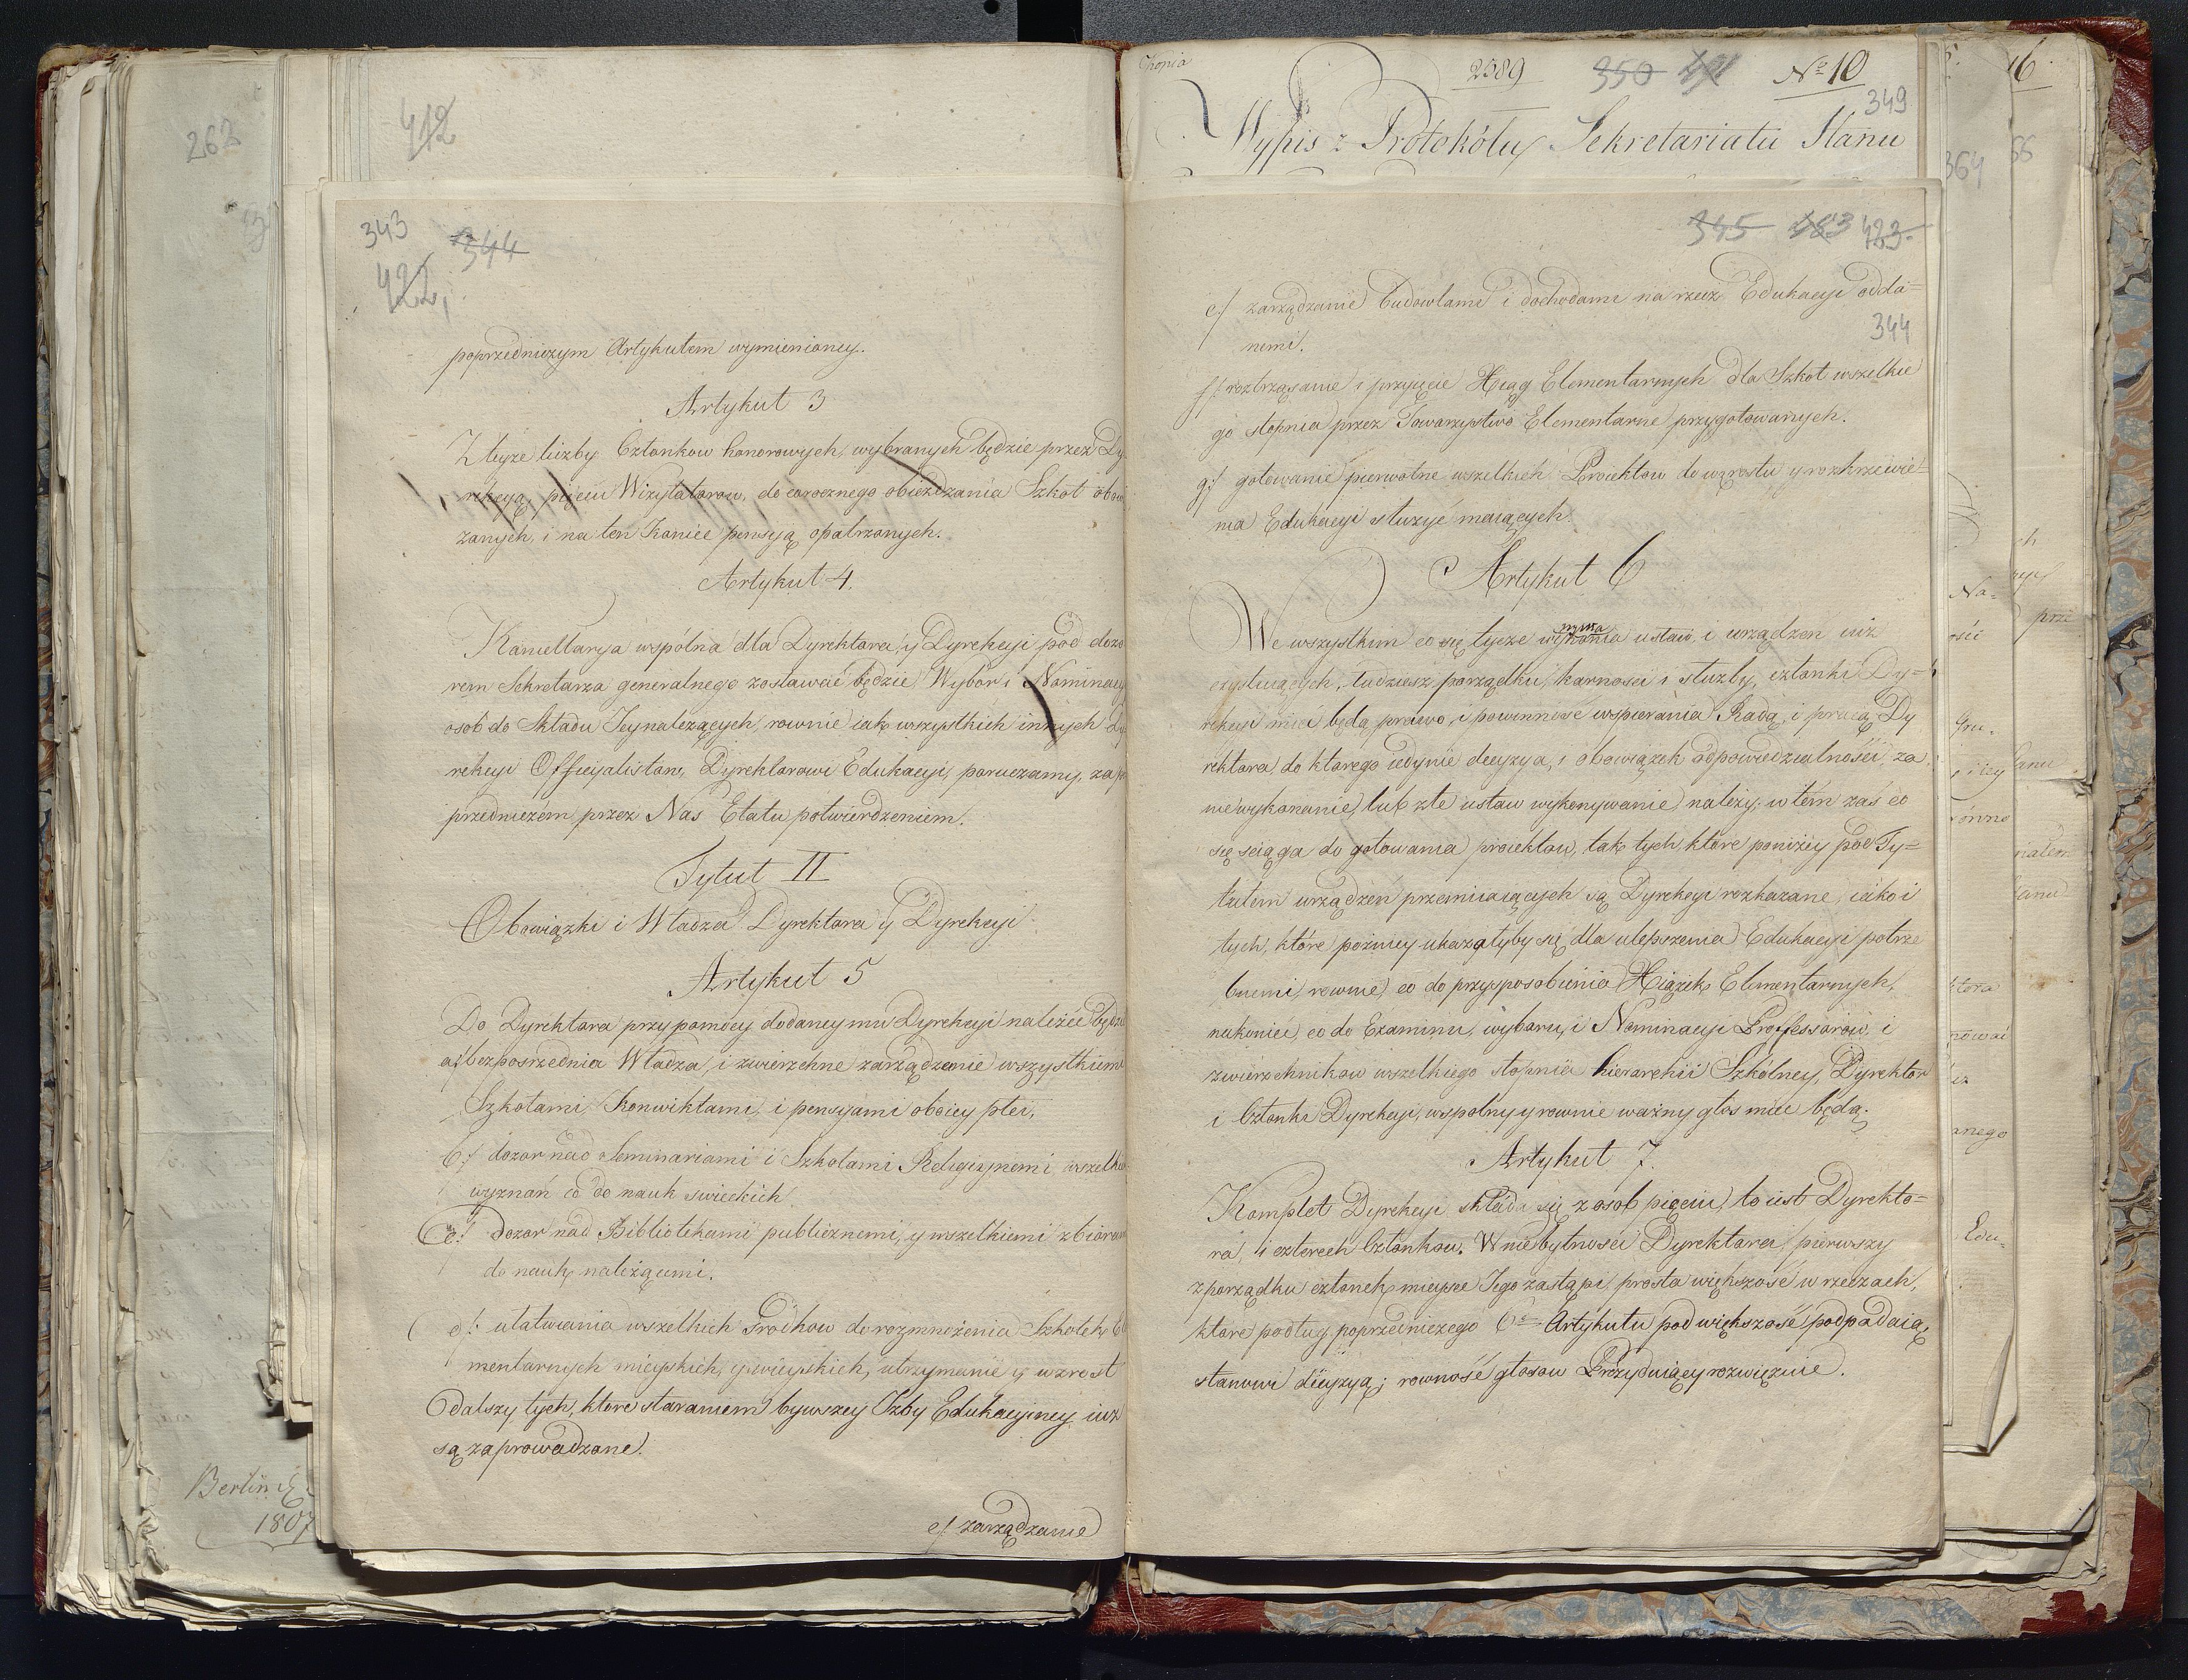 262
412
343 344
422
poprzedniczym Artykułem wymienioney.
Artykuł 3
Z teyże liczby Członkow honorowych, wybranych będzie przez Dy
rekcyą, pięciu Wizytatorow, do corocznego obieżdzania Szkoł obow
zanych, i na ten koniec pensyą opatrzonych.
Artykuł 4.
Kancellarya wspólna dla Dyrektora, y Dyrekcyi pod dozo
rem Sekretarza generalnego zostawać będzie. Wybor i Nominacy
osob do składu Jey należących, rownie iak wszystkich innych Dy
rekcyi Officyalistow, Dyrektorowi Edukacyi, poruczamy, za po
przedniczém przez Nas Etatu potwierdzeniem.
Tytuł II
Obowiązki i Władza Dyrektora y Dyrekcyi
Artykuł 5
Do Dyrektora przy pomocy dodaney mu Dyrekcyi należeć będzie
a/ bezposrzednia Władza, i zwierzchne zarządzanie wszystkiemi
Szkołami, Konwiktami, i pensyami oboiey płci,
b/ dozor nad Seminariami i Szkołami Religiynemi wszelkich
wyznań co do nauk swieckich
c/ dozor nad Bibliotekami publicznemi, y wszelkiemi zbiorami
do nauk należącemi.
d/ ułatwienia wszelkich srodkow do rozmnożenia Szkołek Ele
mentarnych mieyskich, y wieyskich, utrzymanie y wzrost
dalszy tych, ktore staraniem bywszey Izby Edukacyiney iuż
są zaprowadzone.
e/ zarządzanie
Berlin
1807
2389 350 No 10
349
Wypis z Protokółu Sekretariatu Stanu
345 423
e/ zarządzanie budowlami i dochodami na rzecz Edukacyi odda=
344
nemi.
f/ roztrząsanie i przyięcie Xiąg Elementarnych dla Szkoł wszelkie
go stopnia przez Towarzystwo Elementarne przygotowanych.
g/ gotowanie pierwotne wszelkich Proiektow do wzrostu y rozkrzewie=
nia Edukacyi służyć maiących.
Artykuł 6
We wszystkim co się tycze wykonania ustaw, i urządzen iuż
exystuiących, tudziesz porządku, karności i służby, członki Dy=
rekcyi mieć będą prawo, i powinność wspierania Radą, i pracą Dy
rektora, do ktorego iedynie decyzya, i obowiązek odpowiedzialności, za
niewykonanie, lub złe ustaw wykonywanie należy; w tém zaś co
się sciąga do gotowania proiektow, tak tych, które poniżey pod Ty=
tułem urządzeń przemiiaiących są Dyrekcyi rozkazane, iako i
tych, które poźniey ukazałyby się dla ulepszenia Edukacyi potrze
bnemi, rownie co do przysposobienia Xiążek Elementarnych,
nakoniec, co do Examinu, wyboru, i Nominacyi Professorów, i
zwierzchnikow wszelkiego stopnia hierarchii Szkólney, Dyrektor
i Członki Dyrekcyi, wspolny y rownie ważny głos mieć będą.
Artykuł 7.
Komplet Dyrekcyi składa się z osob pięciu, to iest Dyrekto=
ra, i czterech Członkow. W niebytności Dyrektora, pierwszy
z porządku członek mieysce Jego zastąpi, prosta większość w rzeczach,
ktore podług poprzedniczego 6o Artykułu pod większość podpadaią,
stanowi decyzyą; rowność głosow Prezyduiący rozwiąznie.
16
364
66
Na=
ości
Gru=
tora
Edu=